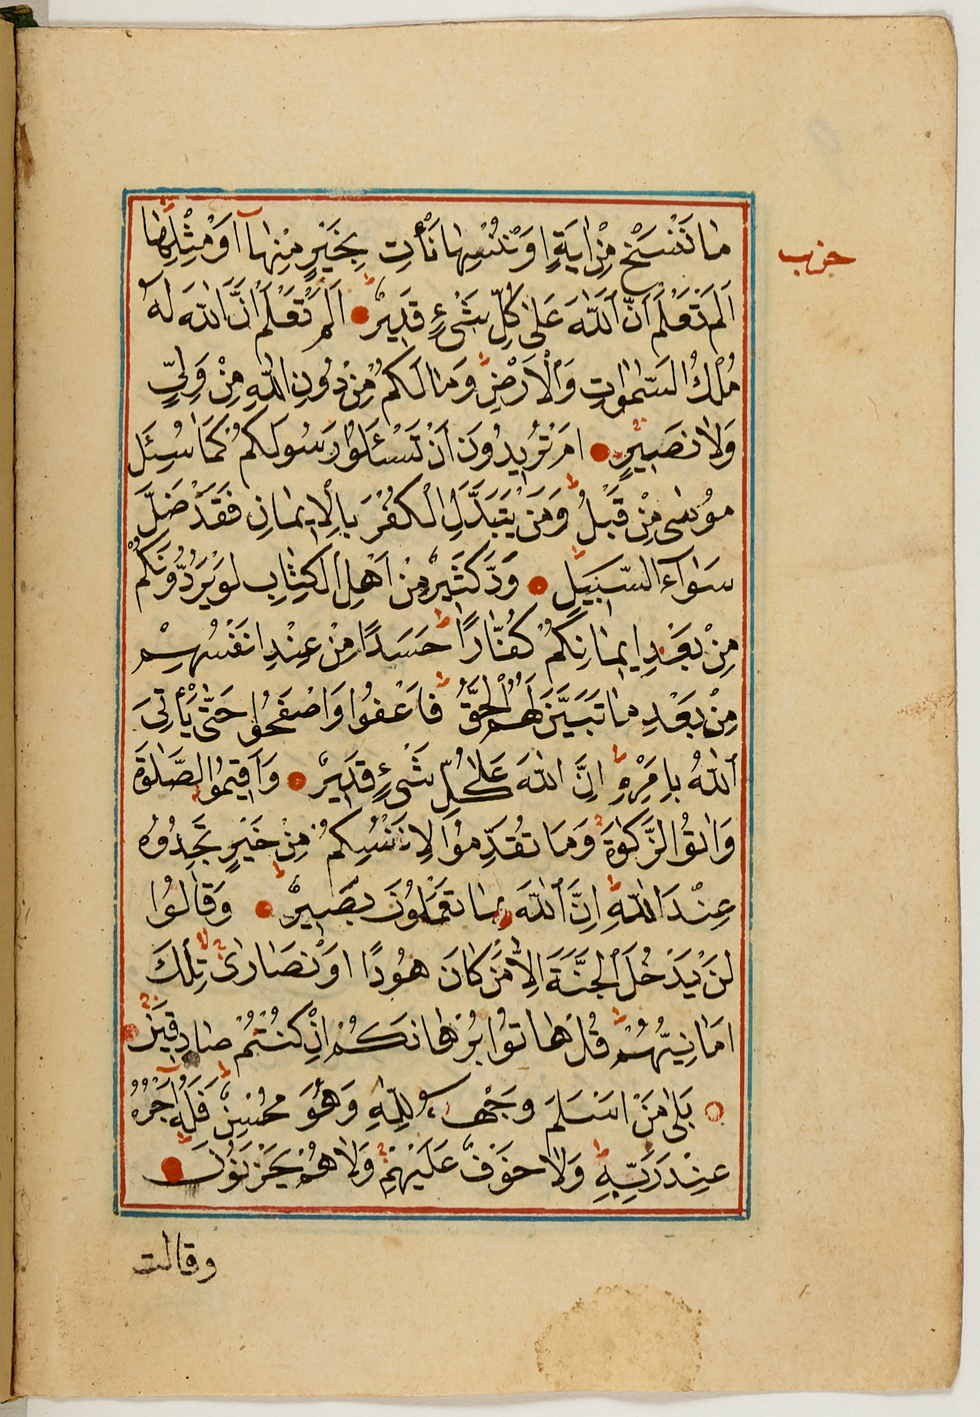 حزب
مَا نَنْسَخْ مِنْ اٰيَةٍ اَوْ نُنْسِهَا نَأْتِ بِخَيْرٍ مِنْهَٓا اَوْ مِثْلِهَا
اَلَمْ تَعْلَمْ اَنَّ اللّٰهَ عَلٰى كُلِّ شَىْءٍ قَدِيرٌ اَلَمْ تَعْلَمْ اَنَّ اللّٰهَ لَهُ
مُلْكُ السَّمٰوَاتِ وَالْاَرْضِ وَمَا لَكُمْ مِنْ دُونِ اللّٰهِ مِنْ وَلِيٍّ
وَلَا نَصِيرٍ اَمْ تُرِيدُونَ اَنْ تَسْـَٔلُوا رَسُولَكُمْ كَمَا سُئِلَ
مُوسٰى مِنْ قَبْلُ وَمَنْ يَتَبَدَّلِ الْكُفْرَ بِالْاِيمَانِ فَقَدْ ضَلَّ
سَوَٓاءَ السَّبِيلِ وَدَّ كَثِيرٌ مِنْ اَهْلِ الْكِتَابِ لَوْ يَرُدُّونَكُمْ
مِنْ بَعْدِ اِيمَانِكُمْ كُفَّارًا حَسَدًا مِنْ عِنْدِ اَنْفُسِهِمْ
مِنْ بَعْدِ مَا تَبَيَّنَ لَهُمُ الْحَقُّ فَاعْفُوا وَاصْفَحُوا حَتّٰى يَأْتِيَ
اللّٰهُ بِاَمْرِهِ اِنَّ اللّٰهَ عَلٰى كُلِّ شَىْءٍ قَدِيرٌ وَاَقِيمُوا الصَّلٰوةَ
وَاٰتُوا الزَّكٰوةَ وَمَا تُقَدِّمُوا لِاَنْفُسِكُمْ مِنْ خَيْرٍ تَجِدُوهُ
عِنْدَ اللّٰهِ اِنَّ اللّٰهَ بِمَا تَعْمَلُونَ بَصِيرٌ وَقَالُوا
لَنْ يَدْخُلَ الْجَنَّةَ اِلَّا مَنْ كَانَ هُودًا اَوْ نَصَارٰى تِلْكَ
اَمَانِيُّهُمْ قُلْ هَاتُوا بُرْهَانَكُمْ اِنْ كُنْتُمْ صَادِقِينَ
بَلٰى مَنْ اَسْلَمَ وَجْهَهُ لِلّٰهِ وَهُوَ مُحْسِنٌ فَلَهُ اَجْرُهُ
عِنْدَ رَبِّهِ وَلَا خَوْفٌ عَلَيْهِمْ وَلَا هُمْ يَحْزَنُونَ
وقالت